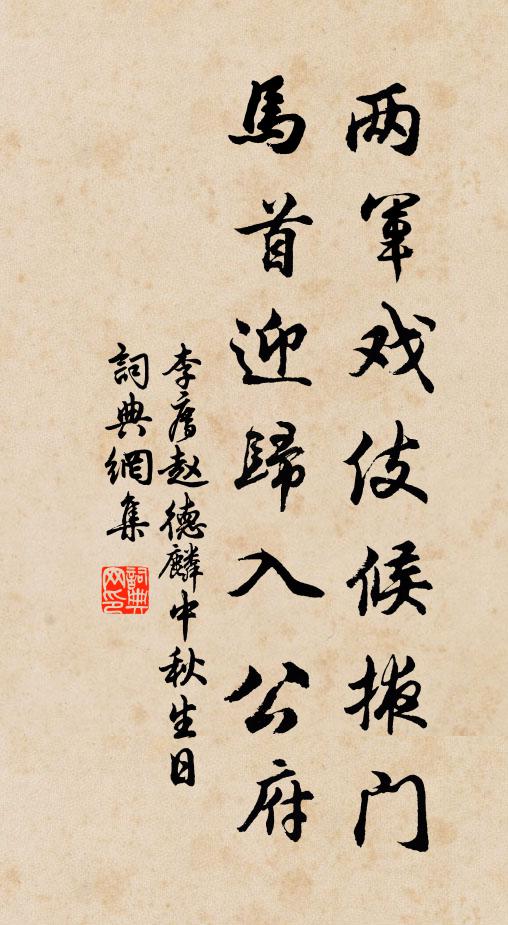 两军戏伎候掖门
馬首迎歸入公府
李廌赵德麟中秋生日
詞典網集
詞典网印